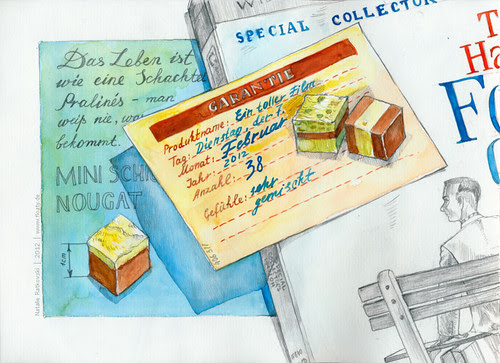 SPECIAL COLLECTOR
Das Leben ist
wie eine Schachtel
Pralinés - man
weiß nie, was
bekommt.
MINI SCHN
NOUGAT
GARANTIE
Produktname: Ein toller Film
Tag: Dienstag, der 7.
Monat: Februar
Jahr: 2012
Anzahl: 38
Gefühle: sehr
gemischt
1cm
Natalie Ratkovski | 2012 |
T
Ha
Fo